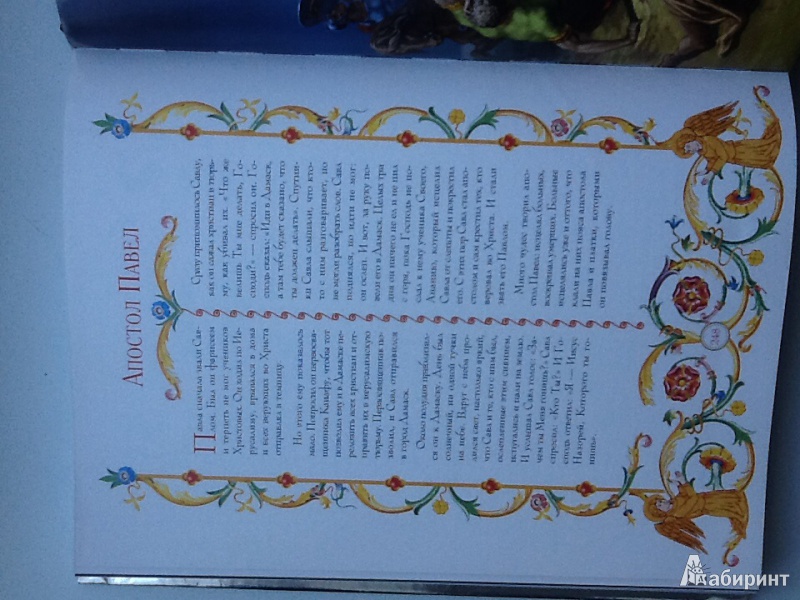 Апостол Павел
Павла сначала звали Сав-
лом. Был он фарисеем
и терпеть не мог учеников
Христовых. Он ходил по Ие-
русалиму, врывался в дома
и всех верующих во Христа
отправлял в темницу.
Но этого ему показалось
мало. Попросил он первосвя-
щенника Каиафу, чтобы тот
позволил ему и в Дамаске пе-
реловить всех христиан и от-
править их в иерусалимскую
тюрьму. Первосвященник по-
зволил, и Савл отправился
в город Дамаск.
Около полудня приближал-
ся он к Дамаску. День был
солнечный, ни одной тучки
на небе. Вдруг с неба про-
лился свет, настолько яркий,
что Савл и те, кто с ним был,
ослепленные этим сиянием,
испугались и пали на землю.
И услышал Савл голос: «За-
чем ты Меня гонишь?» Савл
спросил: «Кто Ты?» И Го-
сподь ответил: «Я — Иисус
Назорей, Которого ты го-
нишь».
Сразу припомнилось Савлу,
как он сажал христиан в тюрь-
му, как убивал их. «Что же
велишь Ты мне делать, Го-
споди?» — спросил он. Го-
сподь сказал: «Иди в Дамаск,
а там тебе будет сказано, что
ты должен делать». Спутни-
ки Савла слышали, что кто-
то с ним разговаривает, но
не могли разобрать слов. Савл
поднялся, но идти не мог:
он ослеп. И вот, за руку по-
вели его в Дамаск. Целых три
дня он ничего не ел и не пил
с горя, пока Господь не по-
слал к нему ученика Своего,
Ананию, который исцелил
Савла от слепоты и покрестил
его. С этих пор Савл стал апо-
столом и сам крестил тех, кто
веровал во Христа. И стали
звать его Павлом.
Много чудес творил апо-
стол Павел: исцелял больных,
воскрешал умерших. Больные
исцелялись уже и оттого, что
клали на них пояса апостола
Павла и платки, которыми
он повязывал голову.
248
Лабиринт